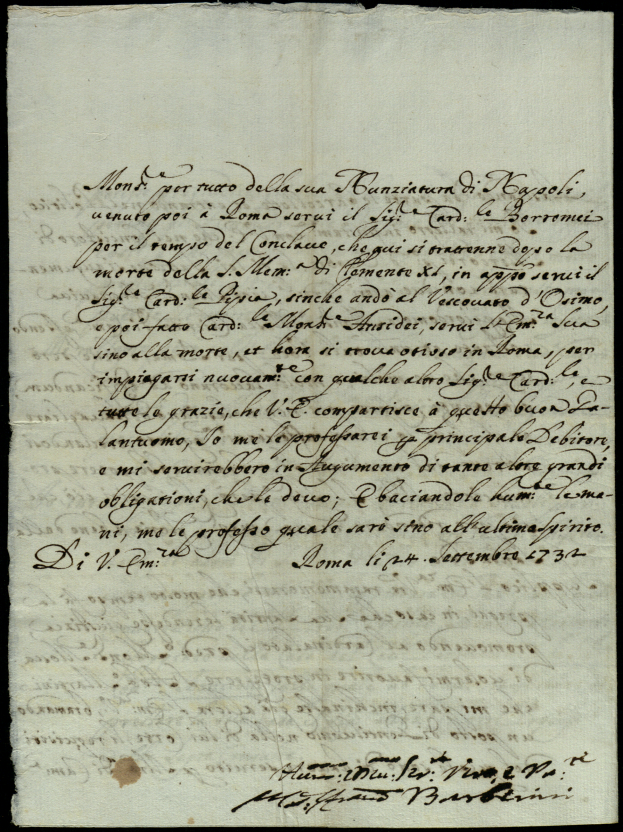 Mons:ᵉ per tutto della sua Nunziatura di Napoli,
venuto poi à Roma servì il Sig:ᵉ Card:ˡᵉ Borromei
per il tempo del Conclave, che qui si trattenne dopo la
morte della S. Mem:ᵃ di Clemente XI, in appo servì il
Sig:ᵉ Card:ˡᵉ Pipia, sinche andò al Vescovato d'Osimo,
e poi fatto Card:ˡᵉ Mons:ᵉ Ansidei, servì l'Em:ᶻᵃ Sua
sino alla morte, et hora si trova otioso in Roma, per
impiegarsi nuovam:ᵗᵉ con qualche altro Sig:ᵉ Card:ˡᵉ, e
tutte le grazie, che V. E. compartisce à questo buon Ga-
lantuomo, Io me le professarei principale Debitore,
e mi servirebbero in Augumento di tante altre grandi
obligationi, che le devo; E baciandole hum:ᵗᵉ le ma-
ni, me le professo quale sarò sino all'ultimo spirito.
Di V. Em:ᶻᵃ Roma li 24. Settembre 1732
Barberini